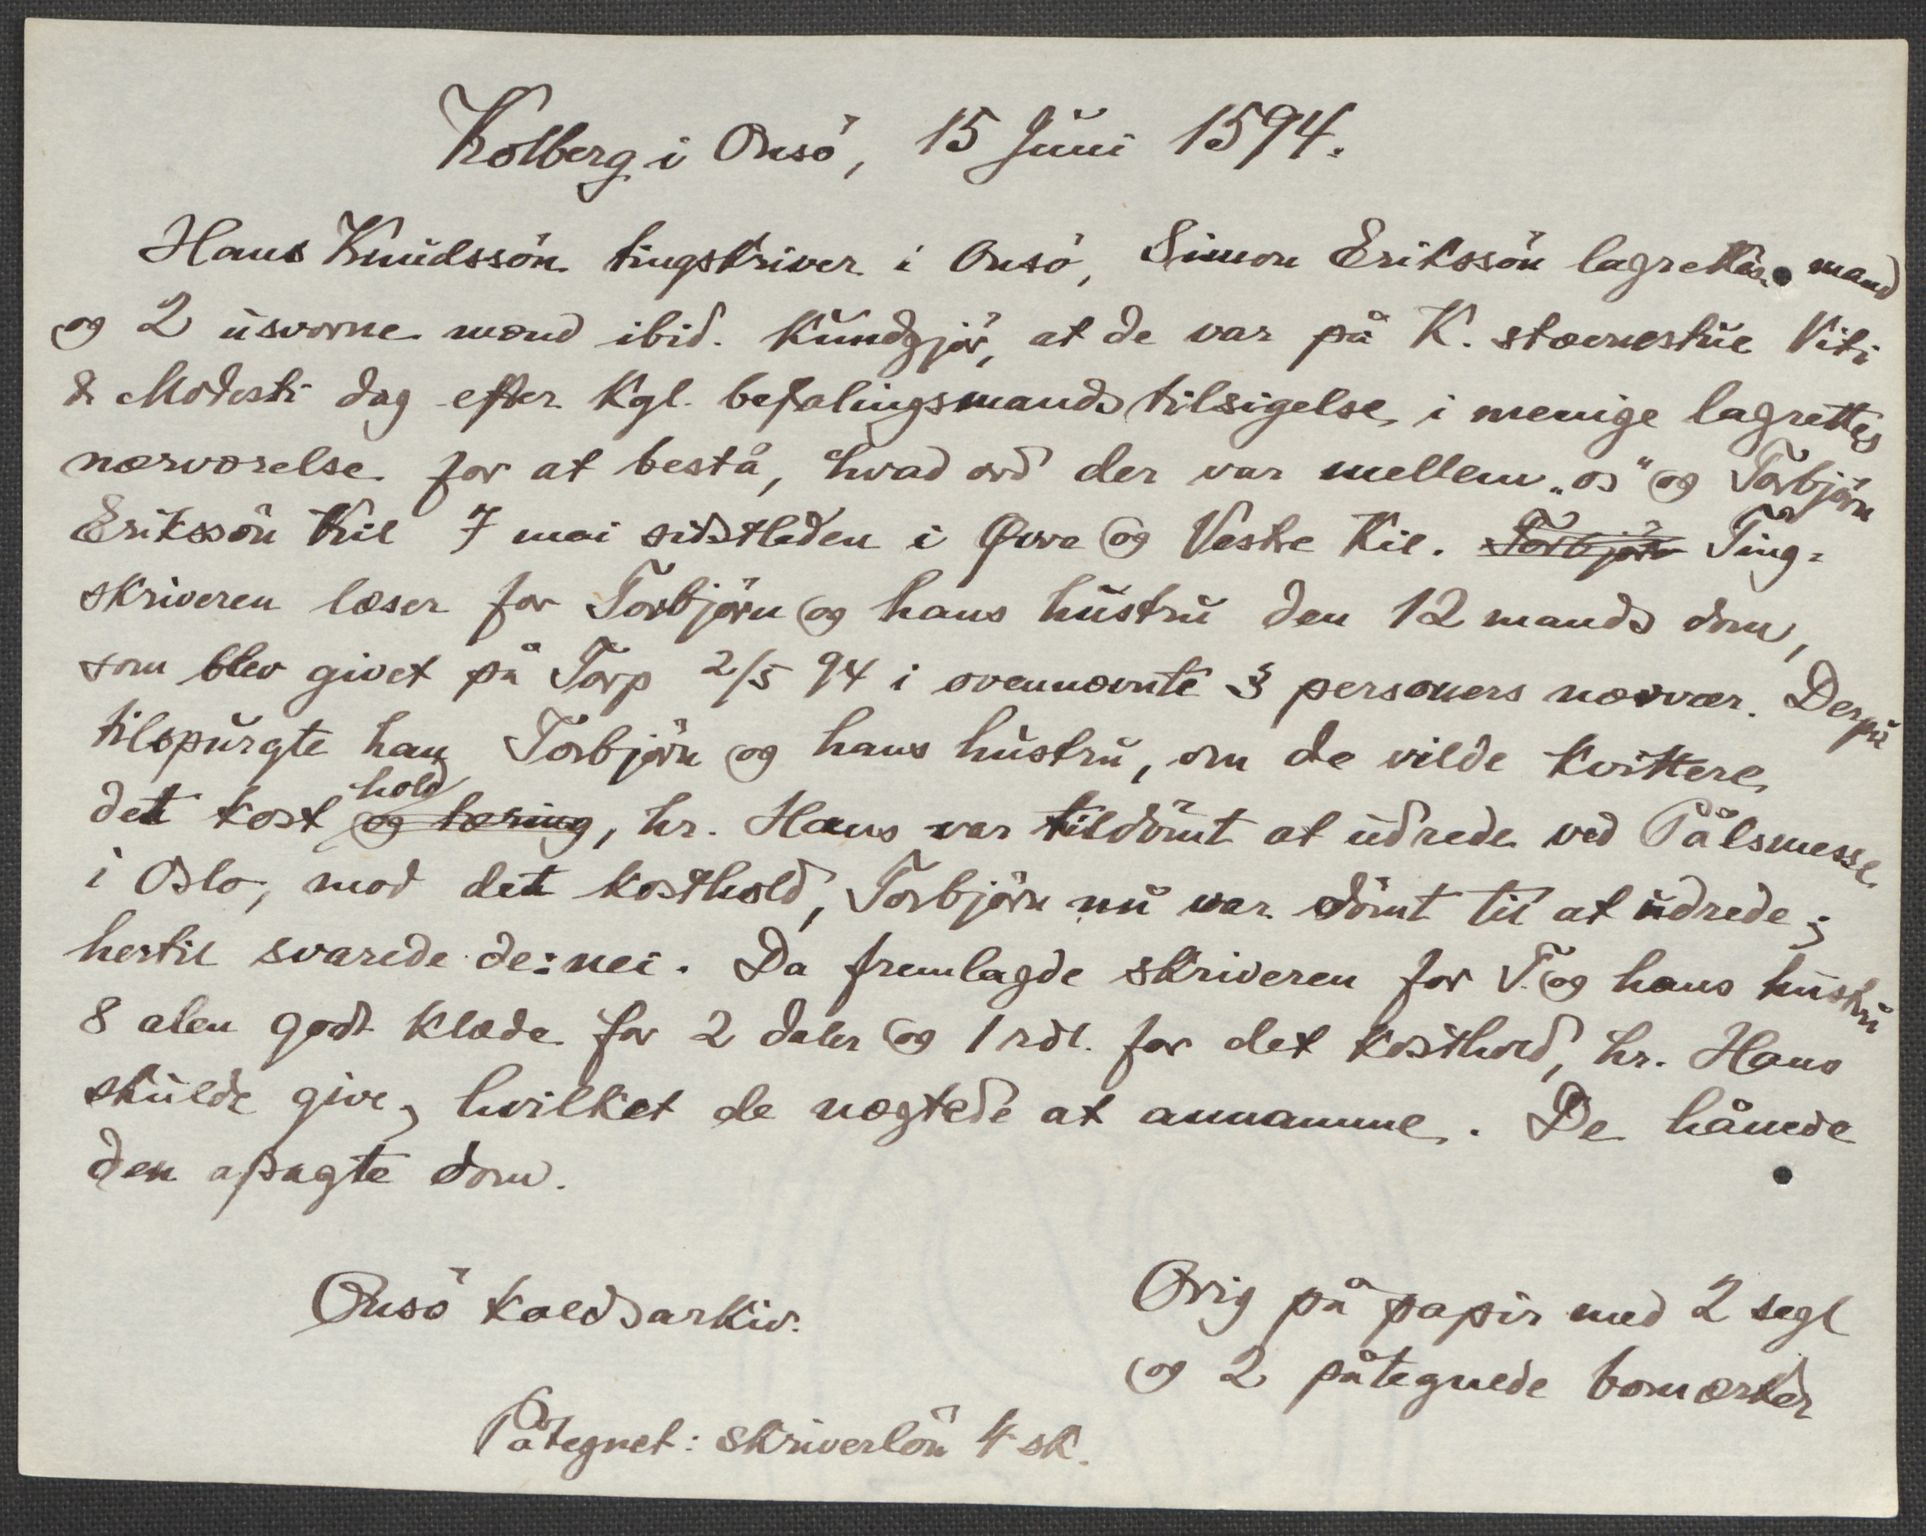 Kolberg i Onsö, 15 Juni 1594.
Hans Knudssön tingskriver i Onsö, Simon Erikssön lagrettes mand
og 2 usvorne mænd ibid. kundgjör, at de var på K. stævnestue Viti
& Modesti dag efter kgl. befalingsmands tilsigelse, i menige lagrettes
nærværelse for at bestå, hvad ord der var mellem „os" og Torbjörn
Erikssön Kil 7 mai sidstleden i Övre og Vestre Kil. Torbjörn Ting-
skriveren læser for Torbjörn og hans hustru den 12 mands dom,
som blev givet på Torp 2/5 94 i ovennævnte 3 personers nærvær. Derpå
tilspurgte han Torbjörn og hans hustru, om de vilde kvittere
det kost hold og tæring, hr. Hans var tildömt at udrede ved Pålsmesse
i Oslo, mod det kosthold, Torbjörn nu var dömt til at udrede;
hertil svarede de: nei. Da fremlagde skriveren for T. og hans hustru
8 alen godt klæde for 2 daler og 1 rdl. for det kosthold, hr. Hans
skulde give, hvilket de nægtede at annamme. De hånede
den afsagte dom.
Onsö kaldsarkiv.
Orig på papir med 2 segl
og 2 påtegnede bomærker
Påtegnet: skriverlön 4 sk.